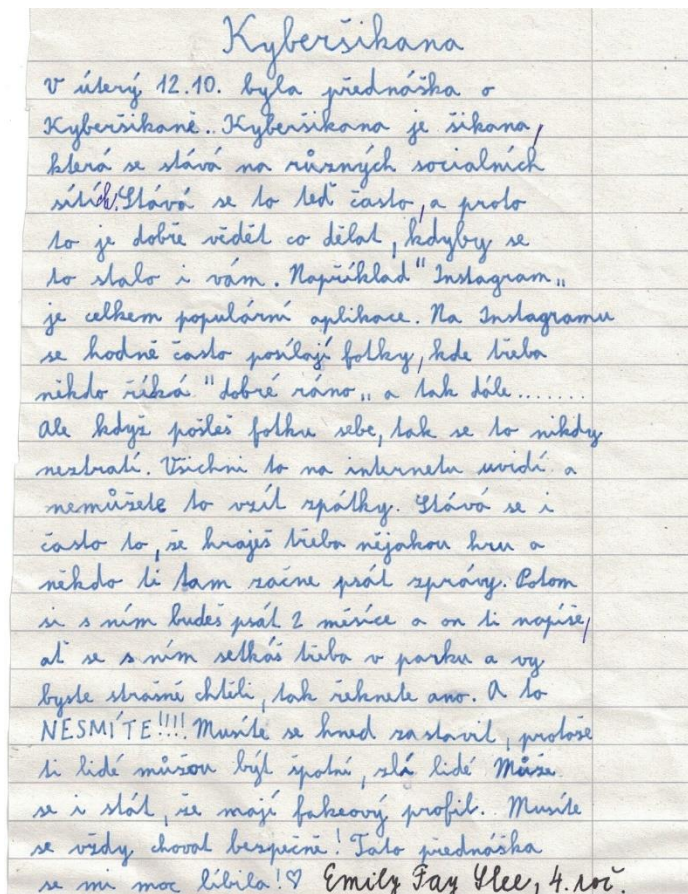 Kyberšikana
V úterý 12.10. byla přednáška o
Kyberšikaně.. Kyberšikana je šikana,
která se stává na různých socialních
sítích. Stává se to teď často, a proto
to je dobře vědět co dělat, kdyby se
to stalo i vám. Například "Instagram„
je celkem populární aplikace. Na Instagramu
se hodně často posílají fotky, kde třeba
někdo říká "dobré ráno„ a tak dále........
Ale když pošleš fotku sebe, tak se to nikdy
neztratí. Všichni to na internetu uvidí a
nemůžete to vzít zpátky. Stává se i
často to, že hraješ třeba nějakou hru a
někdo ti tam začne psát zprávy. Potom
si s ním budeš psát 2 měsíce a on ti napíše,
ať se s ním setkáš třeba v parku a vy
byste strašně chtěli, tak řeknete ano. A to
NESMÍTE!!!! Musíte se hned zastavit, protože
ti lidé můžou být špatní, zlí lidé Může
se i stát, že mají fakeový profil. Musíte
se vždy chovat bezpečně! Tato přednáška
se mi moc líbila!♡ Emily Fay Slee, 4. roč